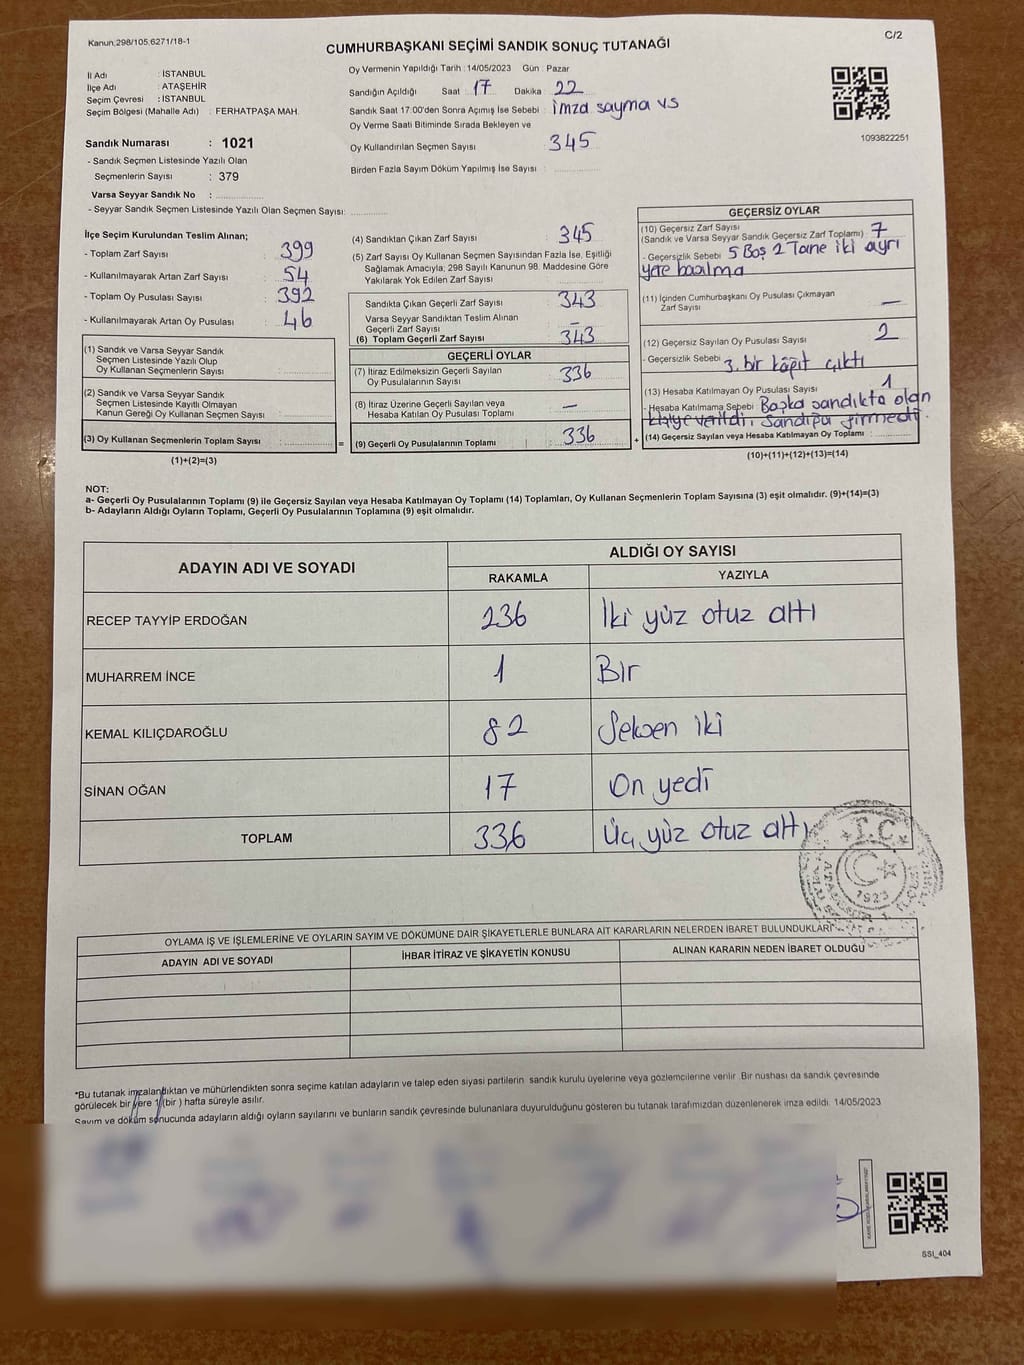 Kanun.298/105.6271/18-1
C/2
CUMHURBAŞKANI SEÇİMİ SANDIK SONUÇ TUTANAĞI
İl Adı : İSTANBUL
İlçe Adı : ATAŞEHİR
Seçim Çevresi : İSTANBUL
Seçim Bölgesi (Mahalle Adı) : FERHATPAŞA MAH.
Oy Vermenin Yapıldığı Tarih : 14/05/2023 Gün : Pazar
Sandığın Açıldığı Saat : 17 Dakika : 22
Sandık Saat 17.00'den Sonra Açımış İse Sebebi : İmza sayma vs
Oy Verme Saati Bitiminde Sırada Bekleyen ve
Oy Kullandırılan Seçmen Sayısı : 345
Birden Fazla Sayım Döküm Yapılmış İse Sayısı :
1093822251
Sandık Numarası : 1021
- Sandık Seçmen Listesinde Yazılı Olan
Seçmenlerin Sayısı : 379
Varsa Seyyar Sandık No :
- Seyyar Sandık Seçmen Listesinde Yazılı Olan Seçmen Sayısı:
İlçe Seçim Kurulundan Teslim Alınan;
- Toplam Zarf Sayısı : 399
- Kullanılmayarak Artan Zarf Sayısı : 54
- Toplam Oy Pusulası Sayısı : 392
- Kullanılmayarak Artan Oy Pusulası : 46
(1) Sandık ve Varsa Seyyar Sandık
Seçmen Listesinde Yazılı Olup
Oy Kullanan Seçmenlerin Sayısı :
(2) Sandık ve Varsa Seyyar Sandık
Seçmen Listesinde Kayıtlı Olmayan
Kanun Gereği Oy Kullanan Seçmen Sayısı :
(3) Oy Kullanan Seçmenlerin Toplam Sayısı :
(1)+(2)=(3)
(4) Sandıktan Çıkan Zarf Sayısı : 345
(5) Zarf Sayısı Oy Kullanan Seçmen Sayısından Fazla İse, Eşitliği
Sağlamak Amacıyla; 298 Sayılı Kanunun 98. Maddesine Göre
Yakılarak Yok Edilen Zarf Sayısı :
Sandıkta Çıkan Geçerli Zarf Sayısı : 343
Varsa Seyyar Sandıktan Teslim Alınan
Geçerli Zarf Sayısı : –
(6) Toplam Geçerli Zarf Sayısı : 343
GEÇERLİ OYLAR
(7) İtiraz Edilmeksizin Geçerli Sayılan
Oy Pusulalarının Sayısı : 336
(8) İtiraz Üzerine Geçerli Sayılan veya
Hesaba Katılan Oy Pusulası Toplamı : –
= (9) Geçerli Oy Pusulalarının Toplamı : 336 +
GEÇERSİZ OYLAR
(10) Geçersiz Zarf Sayısı
(Sandık ve Varsa Seyyar Sandık Geçersiz Zarf Toplamı) : 7
- Geçersizlik Sebebi : 5 Boş 2 Tane iki ayrı
yere basılma
(11) İçinden Cumhurbaşkanı Oy Pusulası Çıkmayan
Zarf Sayısı : –
(12) Geçersiz Sayılan Oy Pusulası Sayısı : 2
- Geçersizlik Sebebi : 3. bir kâğıt çıktı
(13) Hesaba Katılmayan Oy Pusulası Sayısı : 1
- Hesaba Katılmama Sebebi : Başka sandıkta olan
kişiye verildi, sandığa girmedi.
(14) Geçersiz Sayılan veya Hesaba Katılmayan Oy Toplamı :
(10)+(11)+(12)+(13)=(14)
NOT:
a- Geçerli Oy Pusulalarının Toplamı (9) ile Geçersiz Sayılan veya Hesaba Katılmayan Oy Toplamı (14) Toplamları, Oy Kullanan Seçmenlerin Toplam Sayısına (3) eşit olmalıdır. (9)+(14)=(3)
b- Adayların Aldığı Oyların Toplamı, Geçerli Oy Pusulalarının Toplamına (9) eşit olmalıdır.
ADAYIN ADI VE SOYADI
ALDIĞI OY SAYISI
RAKAMLA YAZIYLA
RECEP TAYYİP ERDOĞAN 236 İki yüz otuz altı
MUHARREM İNCE 1 Bir
KEMAL KILIÇDAROĞLU 82 Seksen iki
SİNAN OĞAN 17 On yedi
TOPLAM 336 Üç yüz otuz altı
T.C.
1923
OYLAMA İŞ VE İŞLEMLERİNE VE OYLARIN SAYIM VE DÖKÜMÜNE DAİR ŞİKAYETLERLE BUNLARA AİT KARARLARIN NELERDEN İBARET BULUNDUKLARI
ADAYIN ADI VE SOYADI İHBAR İTİRAZ VE ŞİKAYETİN KONUSU ALINAN KARARIN NEDEN İBARET OLDUĞU
*Bu tutanak imzalandıktan ve mühürlendikten sonra seçime katılan adayların ve talep eden siyasi partilerin sandık kurulu üyelerine veya gözlemcilerine verilir. Bir nüshası da sandık çevresinde
görülecek bir yere 1 (bir ) hafta süreyle asılır.
Sayım ve döküm sonucunda adayların aldığı oyların sayılarını ve bunların sandık çevresinde bulunanlara duyurulduğunu gösteren bu tutanak tarafımızdan düzenlenerek imza edildi. 14/05/2023
SSI_404